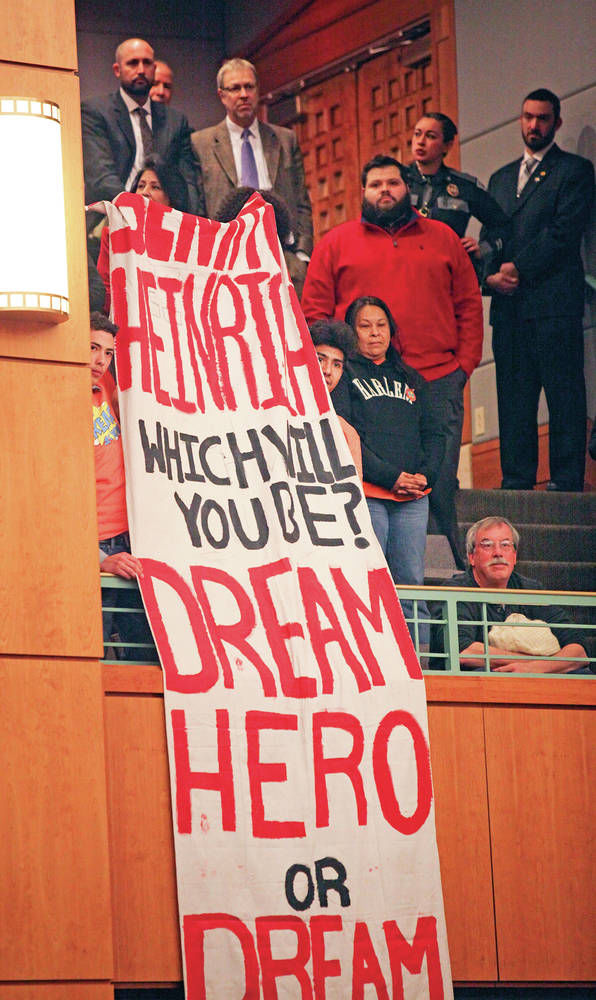 HEINRICH
WHICH WILL
YOU BE?
DREAM
HERO
OR
DREAM
HARLEM